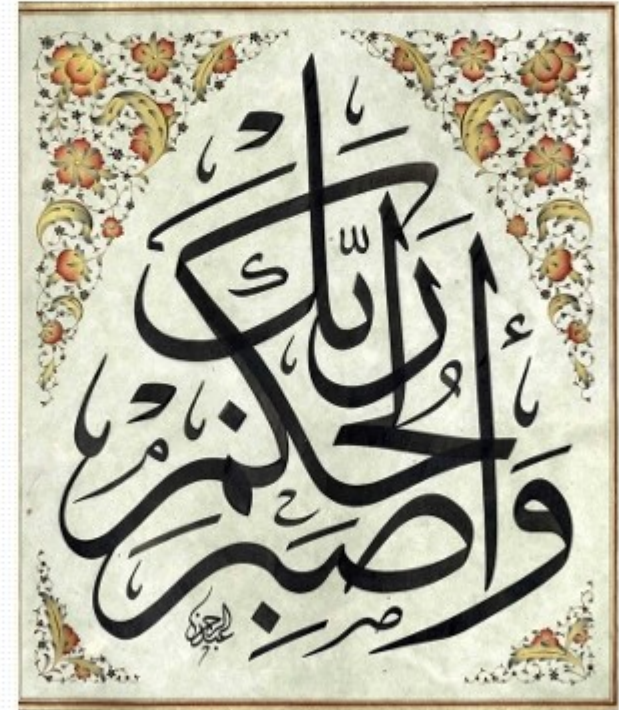 وَاصْبِرْ لِحُكْمِ رَبِّكَ